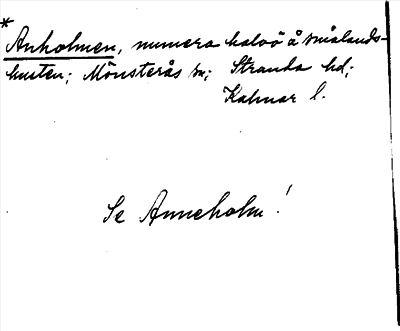 * Anholmen, numera halvö å smålands-
kusten; Mönsterås sn; Stranda hd;
Kalmar l.
Se Anneholm!